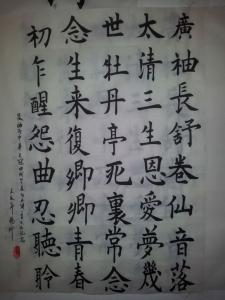 廣袖長舒卷仙音落
太清三生恩愛夢幾
世牡丹亭死裏常念
念生来復卿卿青春
初乍醒怨曲忍聽聆